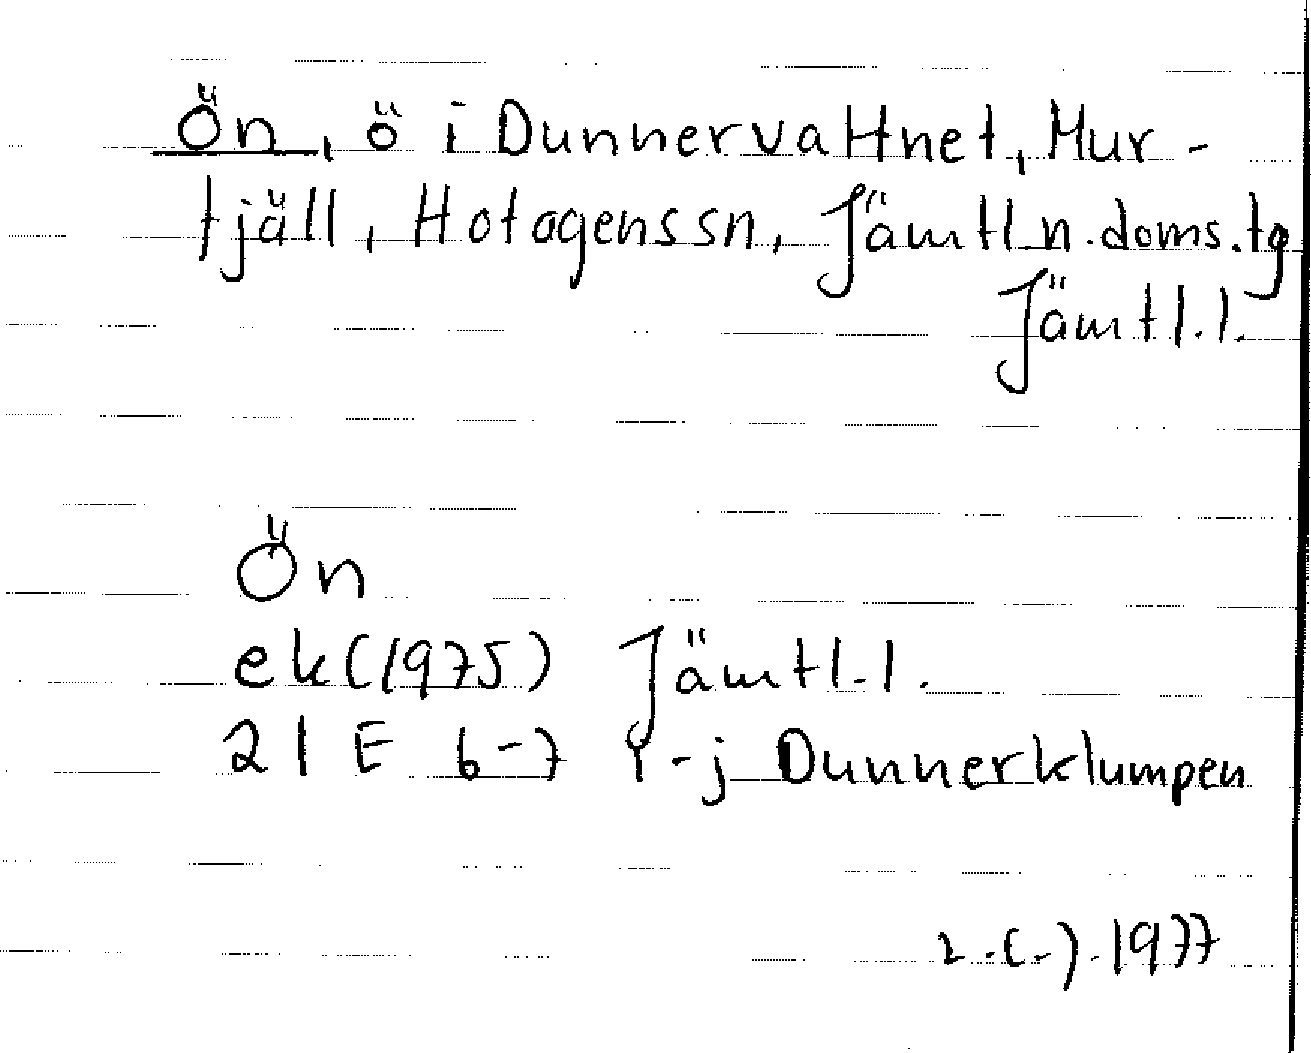 Ön, ö i Dunnervattnet, Mur-
fjäll, Hotagens sn, Jämtl. n. doms. tg
Jämtl. l.
Ön
ek (1975) Jämtl. l.
21 E 6-7 i-j Dunnerklumpen
1977